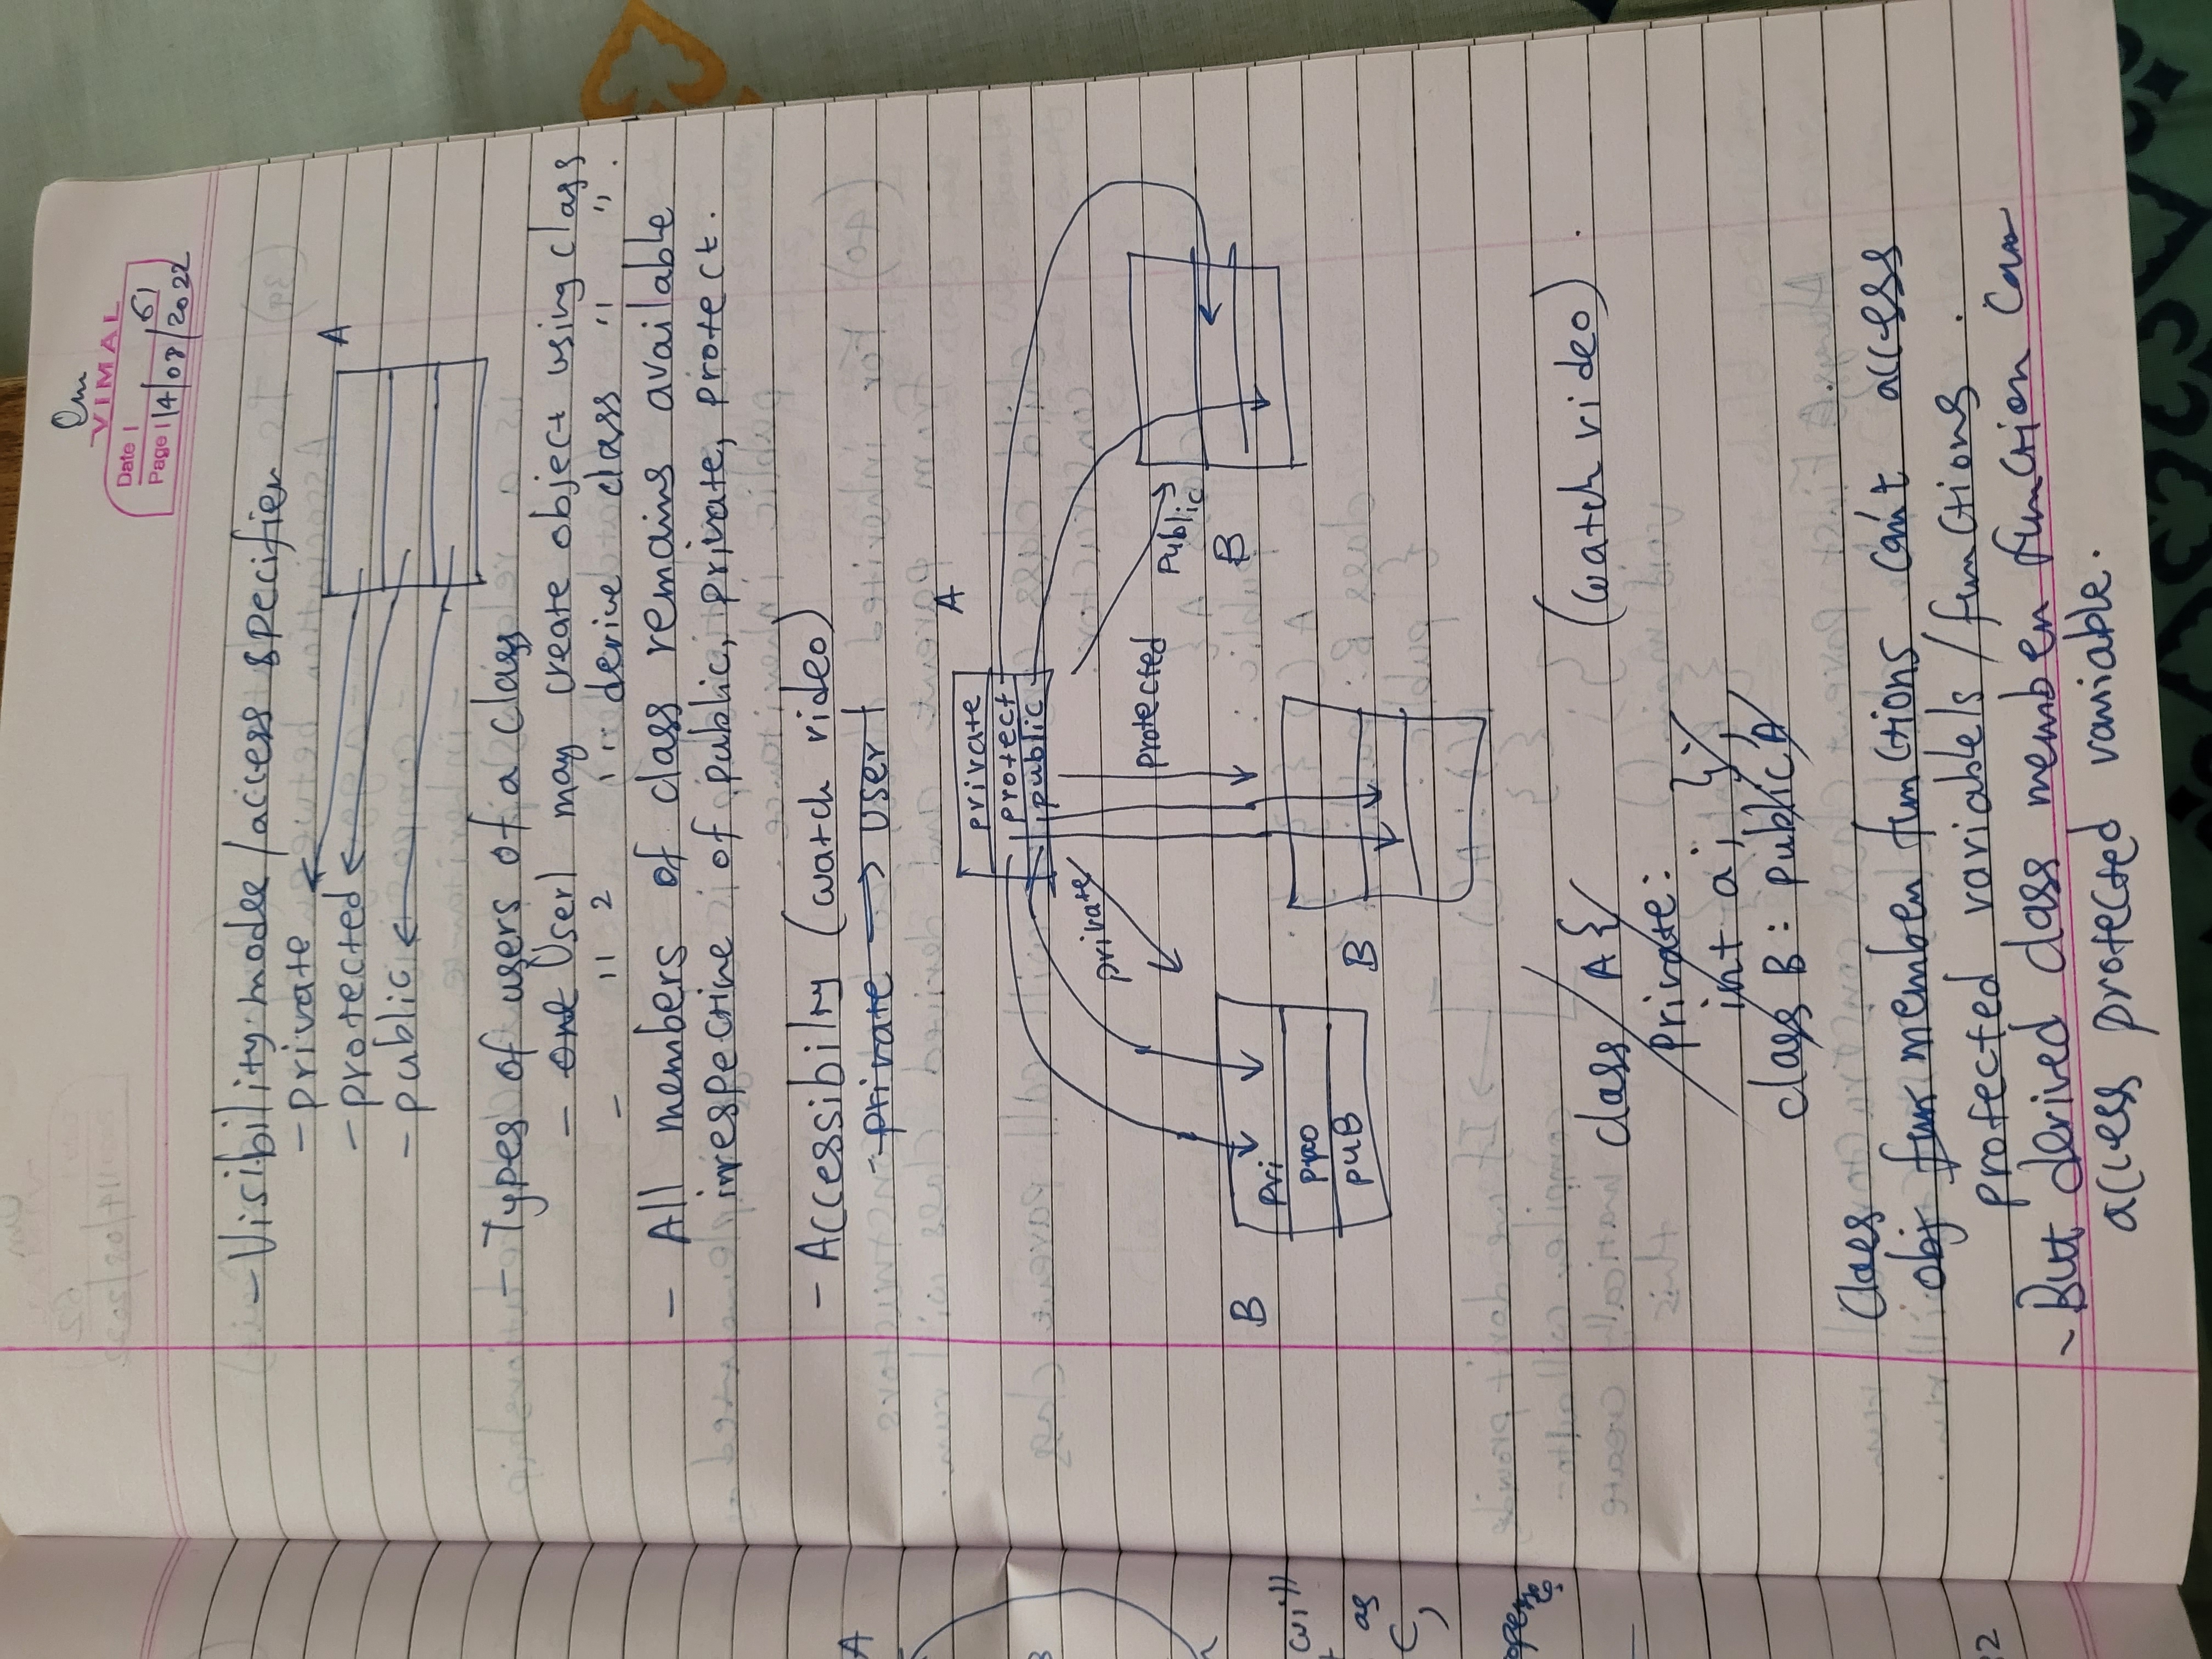 Om
VIMAL
Date |
61
Page | 14/08/2022
- Visibility modee / access specifier
- private
A
- protected
- public
- Types of users of a class
- one User1 may create object using class
- " 2 " " derive class " ".
- All members of class remains available
irrespective of public, private, protect.
- Accessibilty (watch video)
- private → user 1
A
private
protect
public
private
protected
public
B
B
pri
pro
puB
B
class A {
(watch video).
private:
int a; };
class B : public A
Class
obj fun member functions can't access
protected variablels / functions.
- But derived class member function can
access protected variable.
A
will
as
C,